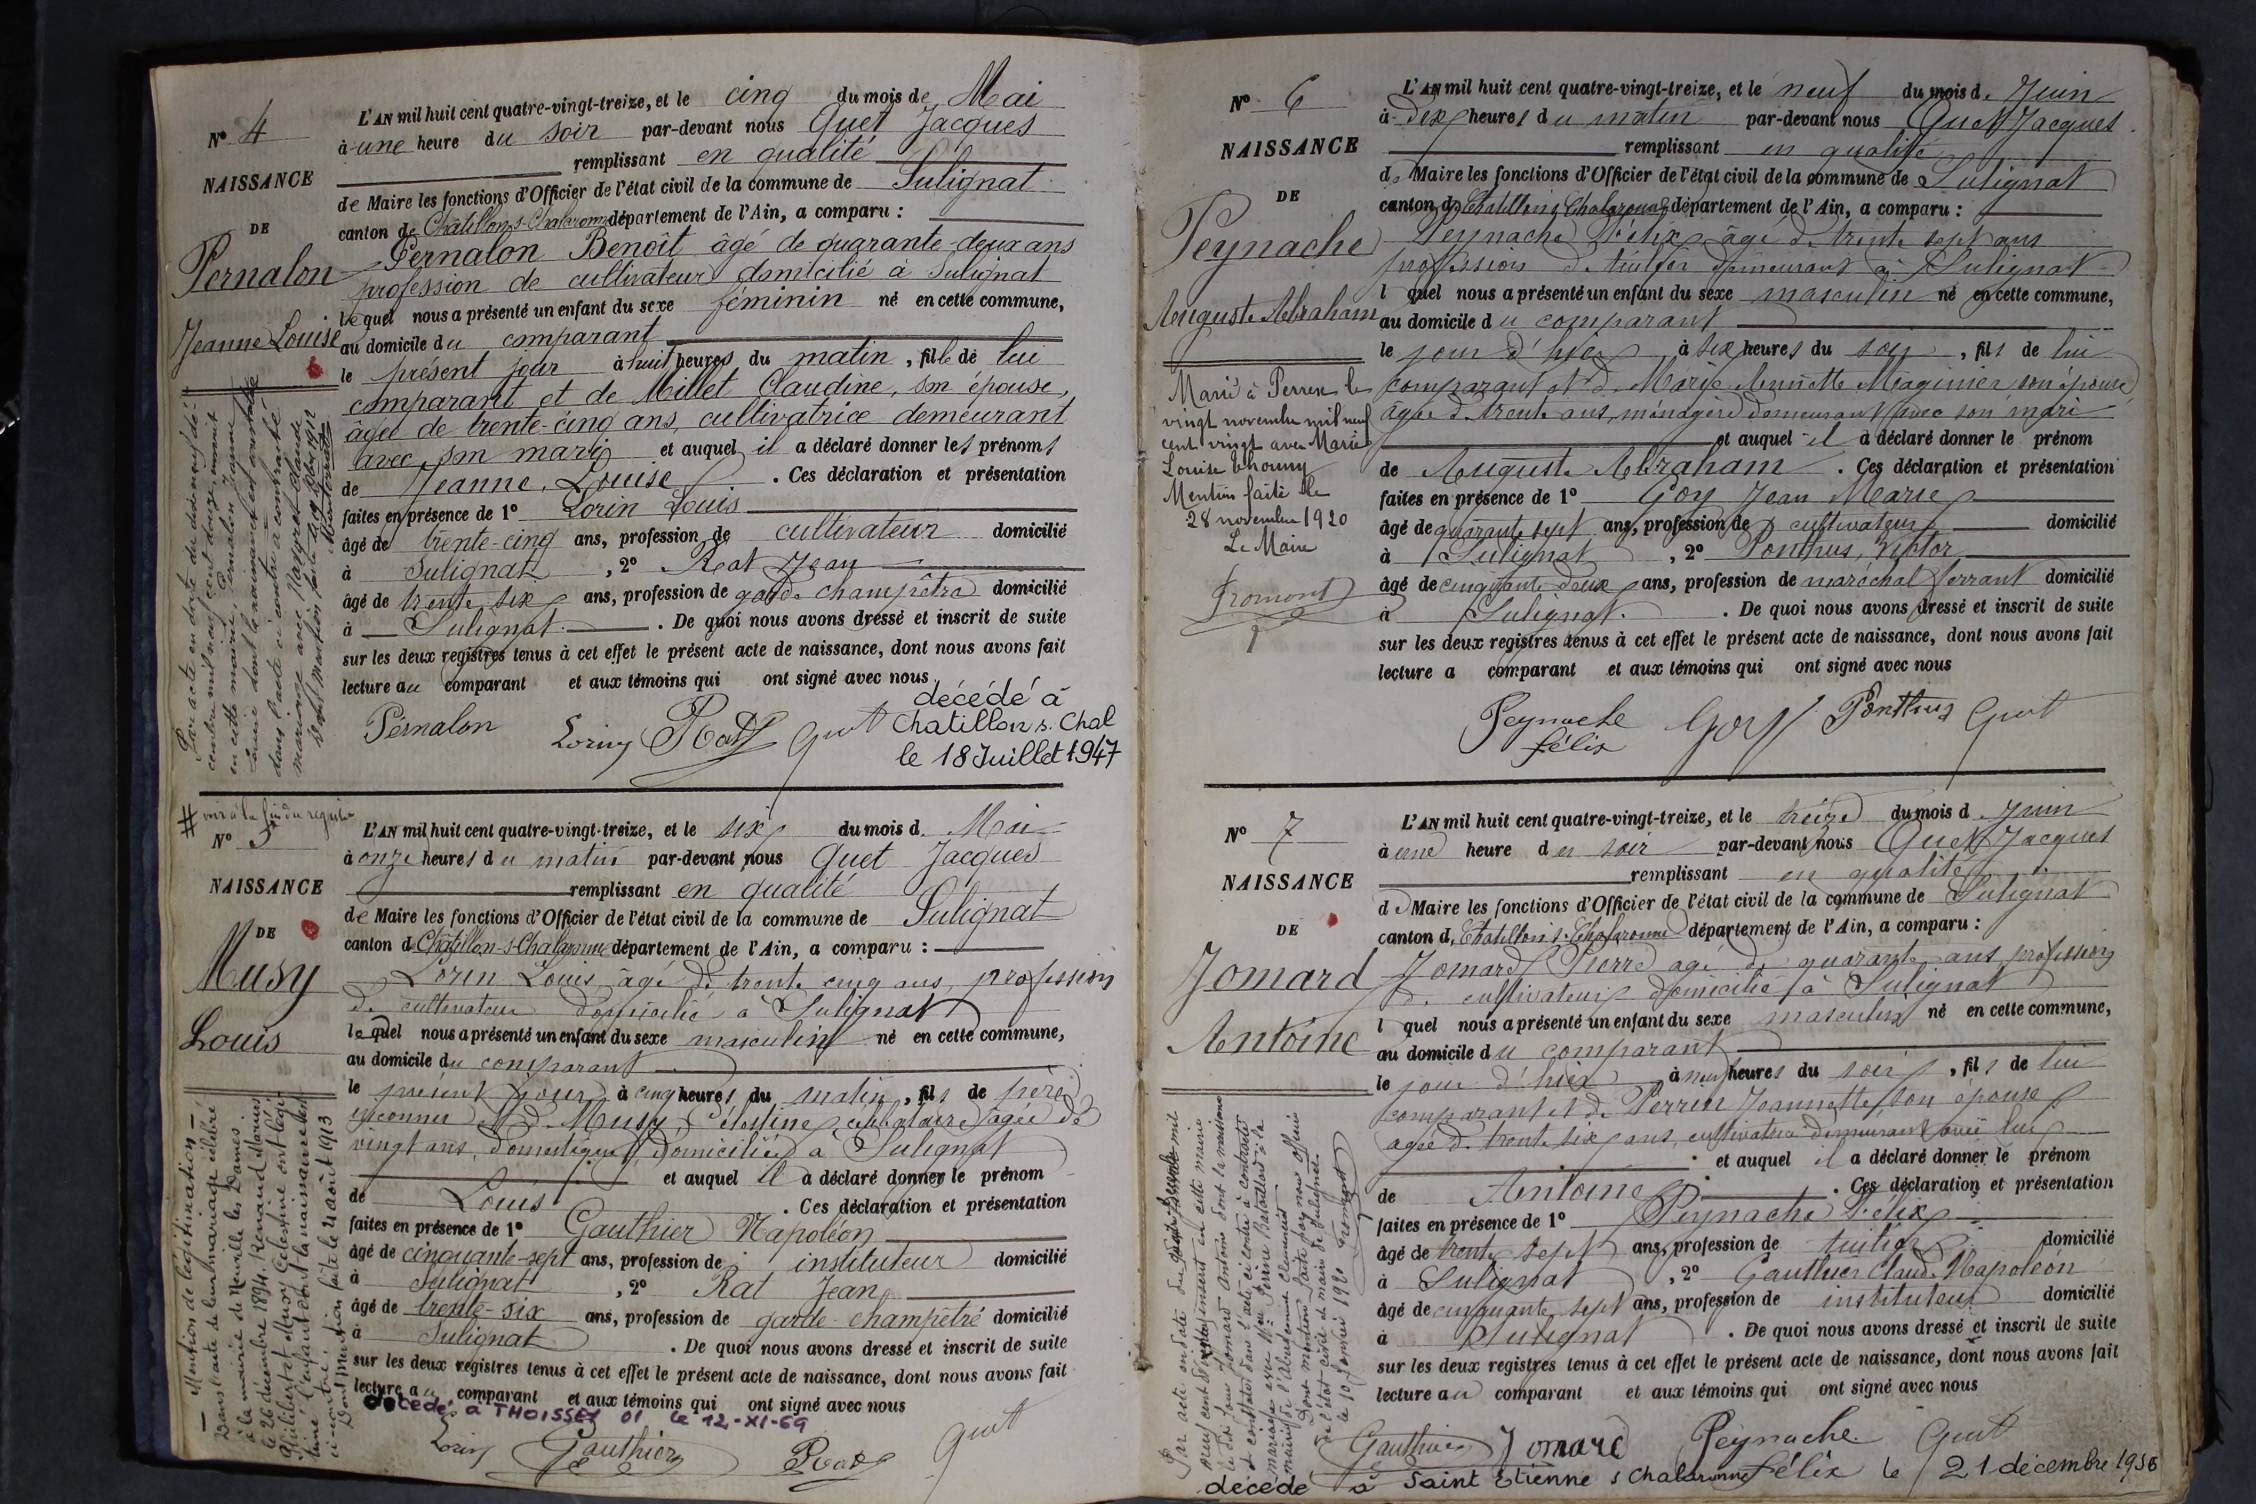 N° 4
NAISSANCE
DE
Pernalon
Jeanne Louise
L'AN mil huit cent quatre-vingt-treize, et le cinq du mois de Mai
à une heure du soir par-devant nous Quet Jacques
remplissant en qualité
de Maire les fonctions d'Officier de l'état civil de la commune de Sulignat
canton de Châtillon-s-Chalaronne département de l'Ain, a comparu :
Pernalon Benoît âgé de quarante-deux ans
profession de cultivateur domicilié à Sulignat
lequel nous a présenté un enfant du sexe féminin né en cette commune,
au domicile du comparant
le présent jour à huit heures du matin, fille de lui
comparant et de Millet Claudine, son épouse,
âgée de trente-cinq ans, cultivatrice demeurant
avec son mari et auquel il a déclaré donner les prénoms
de Jeanne, Louise. Ces déclaration et présentation
faites en présence de 1° Lorin Louis
âgé de trente-cinq ans, profession de cultivateur domicilié
à Sulignat, 2° Rat Jean
âgé de trente-six ans, profession de garde champêtre domicilié
à Sulignat. De quoi nous avons dressé et inscrit de suite
sur les deux registres tenus à cet effet le présent acte de naissance, dont nous avons fait
lecture au comparant et aux témoins qui ont signé avec nous
Pernalon Lorin Rat Quet
décédé à
Chatillon s. Chal
le 18 Juillet 1947
Par acte en date du dix neuf dé-
cembre mil neuf cent douze, inscrit
en cette mairie, Pernalon Jeanne
Louise dont la naissance est constatée
dans l'acte ci contre a contracté
mariage avec Claude
Dont mention faite le 19 Xbre 1912
# voir à la fin du registre
N° 5
NAISSANCE
DE
Musy
Louis
L'AN mil huit cent quatre-vingt-treize, et le six du mois d. Mai
à onze heures du matin par-devant nous Quet Jacques
remplissant en qualité
de Maire les fonctions d'Officier de l'état civil de la commune de Sulignat
canton de Châtillon-s-Chalaronne département de l'Ain, a comparu :
Lorin Louis, âgé de trente cinq ans, profession
de cultivateur domicilié à Sulignat
lequel nous a présenté un enfant du sexe masculin né en cette commune,
au domicile du comparant
le présent jour à cinq heures du matin, fils de père
inconnu et de Musy Célestine célibataire âgée de
vingt ans, domestique, domiciliée à Sulignat
et auquel il a déclaré donner le prénom
de Louis. Ces déclaration et présentation
faites en présence de 1° Gauthier Napoléon
âgé de cinquante-sept ans, profession de instituteur domicilié
à Sulignat, 2° Rat Jean
âgé de trente-six ans, profession de garde-champêtre domicilié
à Sulignat. De quoi nous avons dressé et inscrit de suite
sur les deux registres tenus à cet effet le présent acte de naissance, dont nous avons fait
lecture au comparant et aux témoins qui ont signé avec nous
décédé à THOISSEY 01 le 12-XI-69
Lorin Gauthier Rat Quet
— Mention de légitimation —
Dans l'acte de leur mariage célébré
à la mairie de Neuville les Dames
le 26 décembre 1894, Renaud Marius
Philibert et Musy Célestine ont légi-
timé l'enfant dont la naissance est
ci-contre.
Dont Mention faite le 21 août 1913
N° 6
NAISSANCE
DE
Peynache
Auguste Abraham
L'AN mil huit cent quatre-vingt-treize, et le neuf du mois d. Juin
à dix heures du matin par-devant nous Quet Jacques
remplissant en qualité
de Maire les fonctions d'Officier de l'état civil de la commune de Sulignat
canton de Chatillon s Chalaronne département de l'Ain, a comparu :
Peynache Félix, âgé de trente sept ans
profession de tuilier demeurant à Sulignat
l quel nous a présenté un enfant du sexe masculin né en cette commune,
au domicile du comparant
le jour d'hier, à six heures du soir, fils de lui
comparant et de Marie Annette Maginier son épouse
âgée de trente ans, ménagère demeurant avec son mari
et auquel il a déclaré donner le prénom
de Auguste Abraham. Ces déclaration et présentation
faites en présence de 1° Goy Jean Marie
âgé de quarante sept ans, profession de cultivateur domicilié
à Sulignat, 2° Ponthus, Victor
âgé de cinquante deux ans, profession de maréchal ferrant domicilié
à Sulignat. De quoi nous avons dressé et inscrit de suite
sur les deux registres tenus à cet effet le présent acte de naissance, dont nous avons fait
lecture a comparant et aux témoins qui ont signé avec nous
Peynache Goy Ponthus Quet
félix
Marié à Perrex le
vingt novembre mil neuf
cent vingt avec Marie
Louise
Mention faite le
28 novembre 1920
Le Maire
Fromont
N° 7
NAISSANCE
DE
Jomard
Antoine
L'AN mil huit cent quatre-vingt-treize, et le treize du mois d. Juin
à une heure du soir par-devant nous Quet Jacques
remplissant en qualité
de Maire les fonctions d'Officier de l'état civil de la commune de Sulignat
canton d. Chatillon s. Chalaronne département de l'Ain, a comparu :
Jomard Pierre âgé de quarante ans, profession
de cultivateur domicilié à Sulignat
l quel nous a présenté un enfant du sexe masculin né en cette commune,
au domicile du comparant
le jour d'hier à neuf heures du soir, fils de lui
comparant et de Perrin Jeannette, son épouse
âgée de trente six ans, cultivatrice demeurant avec lui
et auquel il a déclaré donner le prénom
de Antoine. Ces déclaration et présentation
faites en présence de 1° Peynache Félix
âgé de trente sept ans, profession de tuilier domicilié
à Sulignat, 2° Gauthier Claude Napoléon
âgé de cinquante sept ans, profession de instituteur domicilié
à Sulignat. De quoi nous avons dressé et inscrit de suite
sur les deux registres tenus à cet effet le présent acte de naissance, dont nous avons fait
lecture au comparant et aux témoins qui ont signé avec nous
Gauthier Jomard Peynache Quet
félix
décédé à Saint Etienne s Chalaronne le 21 décembre 1956
Par acte en date du mil
neuf cent inscrit en cette mairie
le dit Jomard Antoine dont la naissance
est constatée dans l'acte ci contre à contracté
mariage avec
Dont mention faite par nous officier
de l'état civil et maire de Sulignat
le 10 1920 Fromont